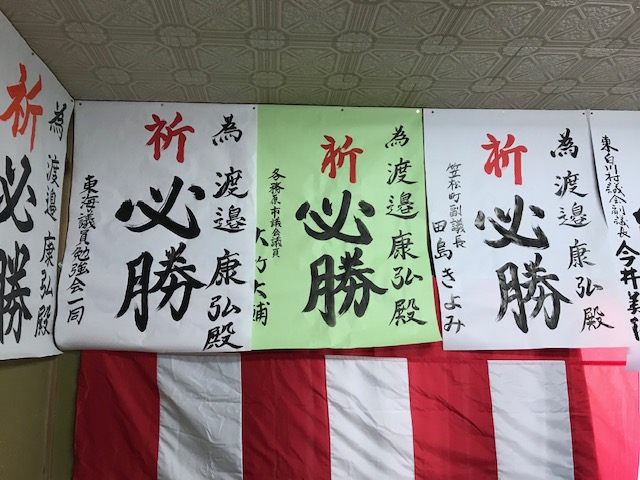 為渡邉康弘殿
祈
必勝
為渡邉康弘殿
祈
必勝
東海議員勉強会一同
為渡邉康弘殿
祈
必勝
各務原市議会議員
大竹大輔
為渡邉康弘殿
祈
必勝
笠松町副議長
田島きよみ
東白川村議会副議長
今井美